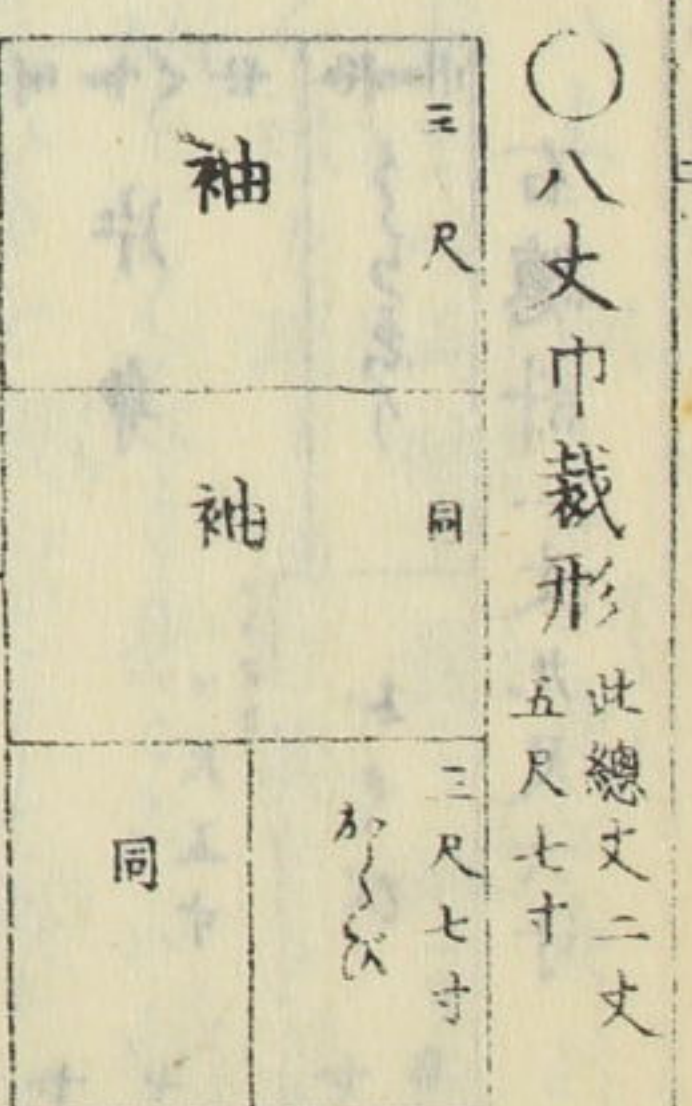 〇八丈巾裁形
此總丈二丈
五尺七寸
三尺
袖
同
袖
三尺七寸
おくび
同